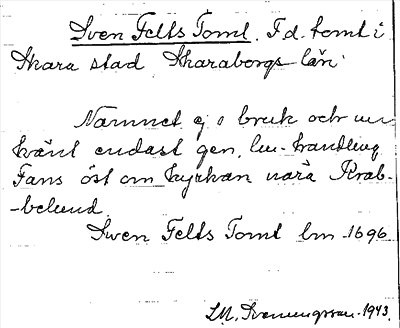 Sven Felts Tomt. F.d. tomt i
Skara stad Skaraborgs län.
Namnet ej i bruk och nu
känt endast gen. lm-handling.
Fans öst om kyrkan nära Krab-
-belund.
Swen Felts Tomt lm 1696
1943.